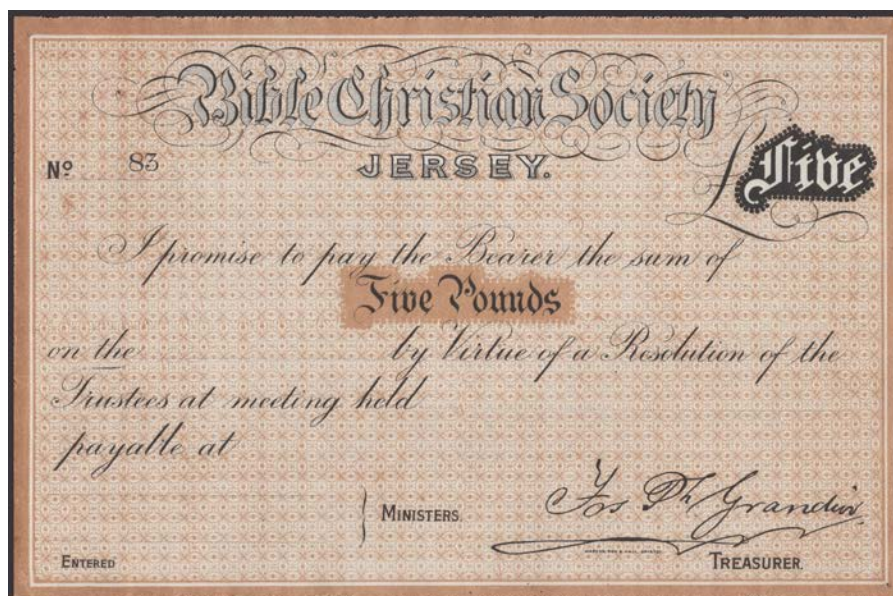 Bible Christian Society
JERSEY.
Nº 83
£ Five
I promise to pay the Bearer the sum of
Five Pounds
on the by Virtue of a Resolution of the
Trustees at meeting held
payable at
MINISTERS.
Jos Ph Grandin
ENTERED
TREASURER.